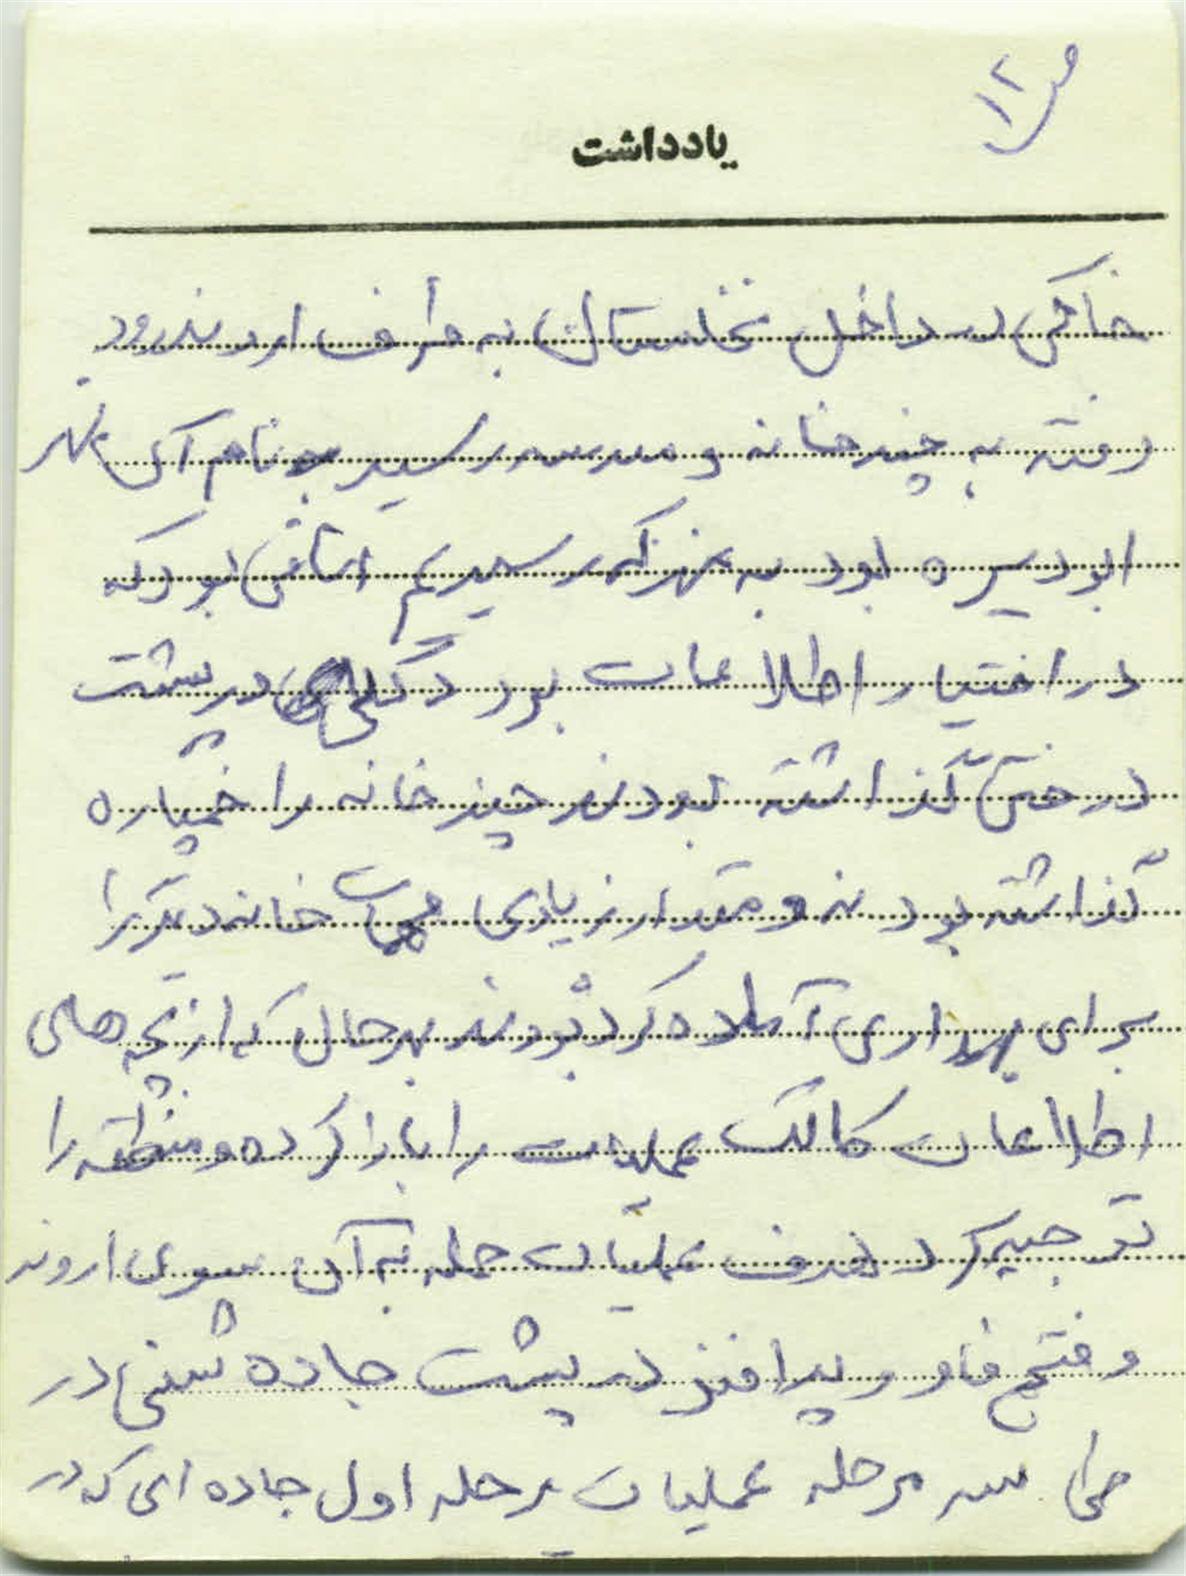 ص ۱۲
یادداشت
خاکی در داخل نخلستان به طرف اروندرود
رفته به چند خانه و مدرسه رسید بنام آن نهر
ابودسیره بود به نهر که رسیدیم اتاقی بود که
در اختیار اطلاعات بود دکلی در پشت
درختی گذاشته بودند چند خانه را خمپاره
گذاشته بودند و مقدار زیادی مهمات خانه دیگر را
برای بهداری آماده کرده بودند بهرحال که از بچه های
اطلاعات کالک عملیات را باز کرده و منطقه را
توجیه کرد هدف عملیات حمله به آن سوی اروند
و فتح فاو و پدافند در پشت جاده شنی در
طی سه مرحله عملیات مرحله اول جاده ای که در